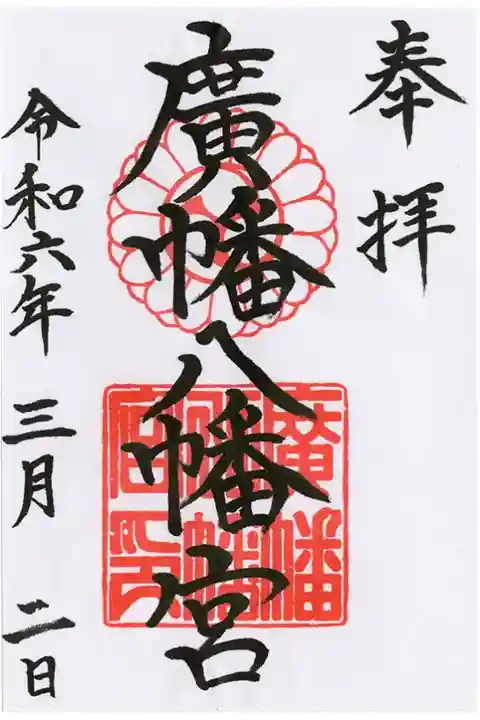 奉拝
廣幡八幡宮
廣幡八幡宮印
令和六年 三月 二日